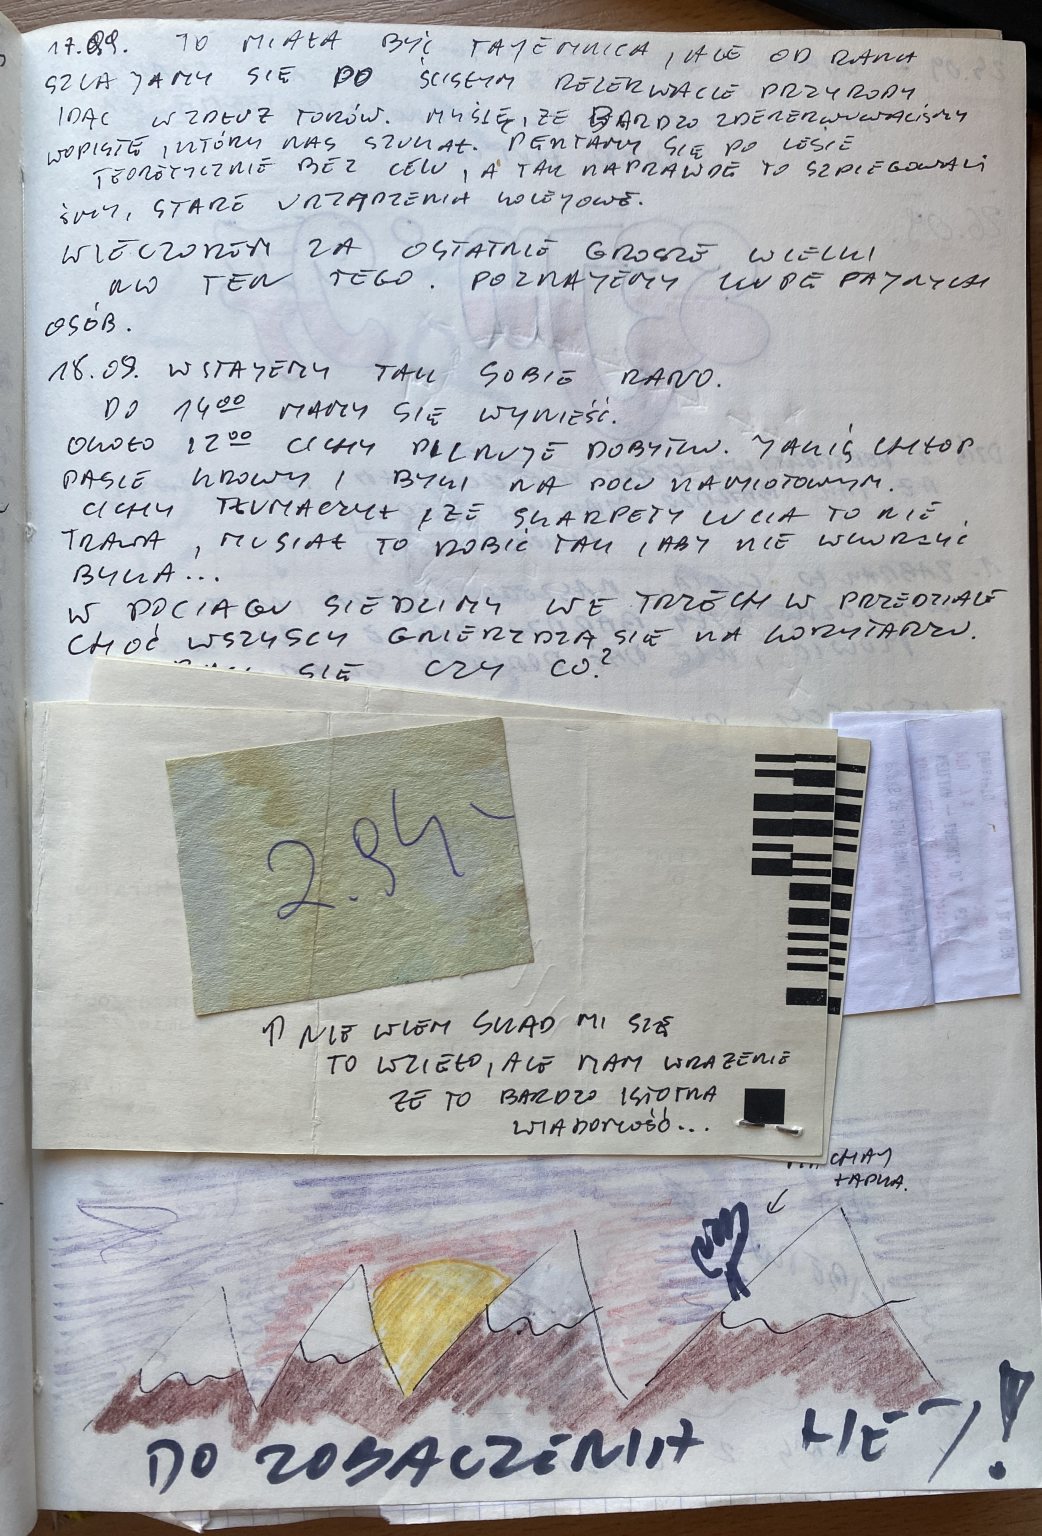 17.09. TO MIAŁA BYĆ TAJEMNICA, ALE OD RANA
SZLAJAMY SIĘ PO ŚCISŁYM REZERWACIE PRZYRODY
IDĄC WZDŁUŻ TORÓW. MYŚLĘ, ŻE BARDZO ZDENERWOWALIŚMY
WOPISTĘ, KTÓRY NAS SZUKAŁ. PĘTAMY SIĘ PO LESIE
TEORETYCZNIE BEZ CELU, A TAK NAPRAWDĘ TO SZPIEGOWALI
ŚMY, STARE URZĄDZENIA KOLEJOWE.
WIECZOREM ZA OSTATNIE GROSZE WIELKI
NO TEN TEGO. POZNAJEMY KUPĘ FAJNYCH
OSÓB.
18.09. WSTAJEMY TAK SOBIE RANO.
DO 14⁰⁰ MAMY SIĘ WYNIEŚĆ.
OKOŁO 12⁰⁰ CICHY PILNUJE DOBYTKU. JAKIŚ CHŁOP
PASIE KROWY I BYKI NA POLU NAMIOTOWYM.
CICHY TŁUMACZYŁ, ŻE SKARPETY LUCIA TO NIE
TRAWA, MUSIAŁ TO ROBIĆ TAK, ABY NIE WKURZYĆ
BYKA...
W POCIĄGU SIEDZIMY WE TRZECH W PRZEDZIALE
CHOĆ WSZYSCY GNIEŻDŻĄ SIĘ NA KORYTARZU.
SIĘ CZY CO?
2.94,-
↑ NIE WIEM SKĄD MI SIĘ
TO WZIĘŁO, ALE MAM WRAŻENIE
ŻE TO BARDZO ISTOTNA
WIADOMOŚĆ...
ŁAPKA.
DO ZOBACZENIA